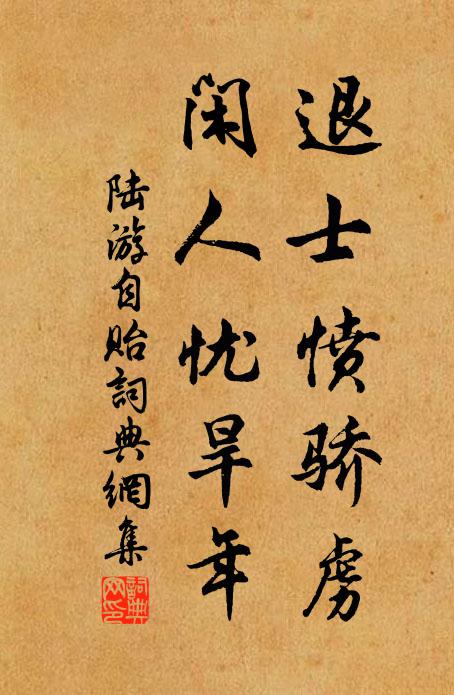 退士愤骄虏
闲人忧旱年
陆游自贻詞典網集
詞典網印